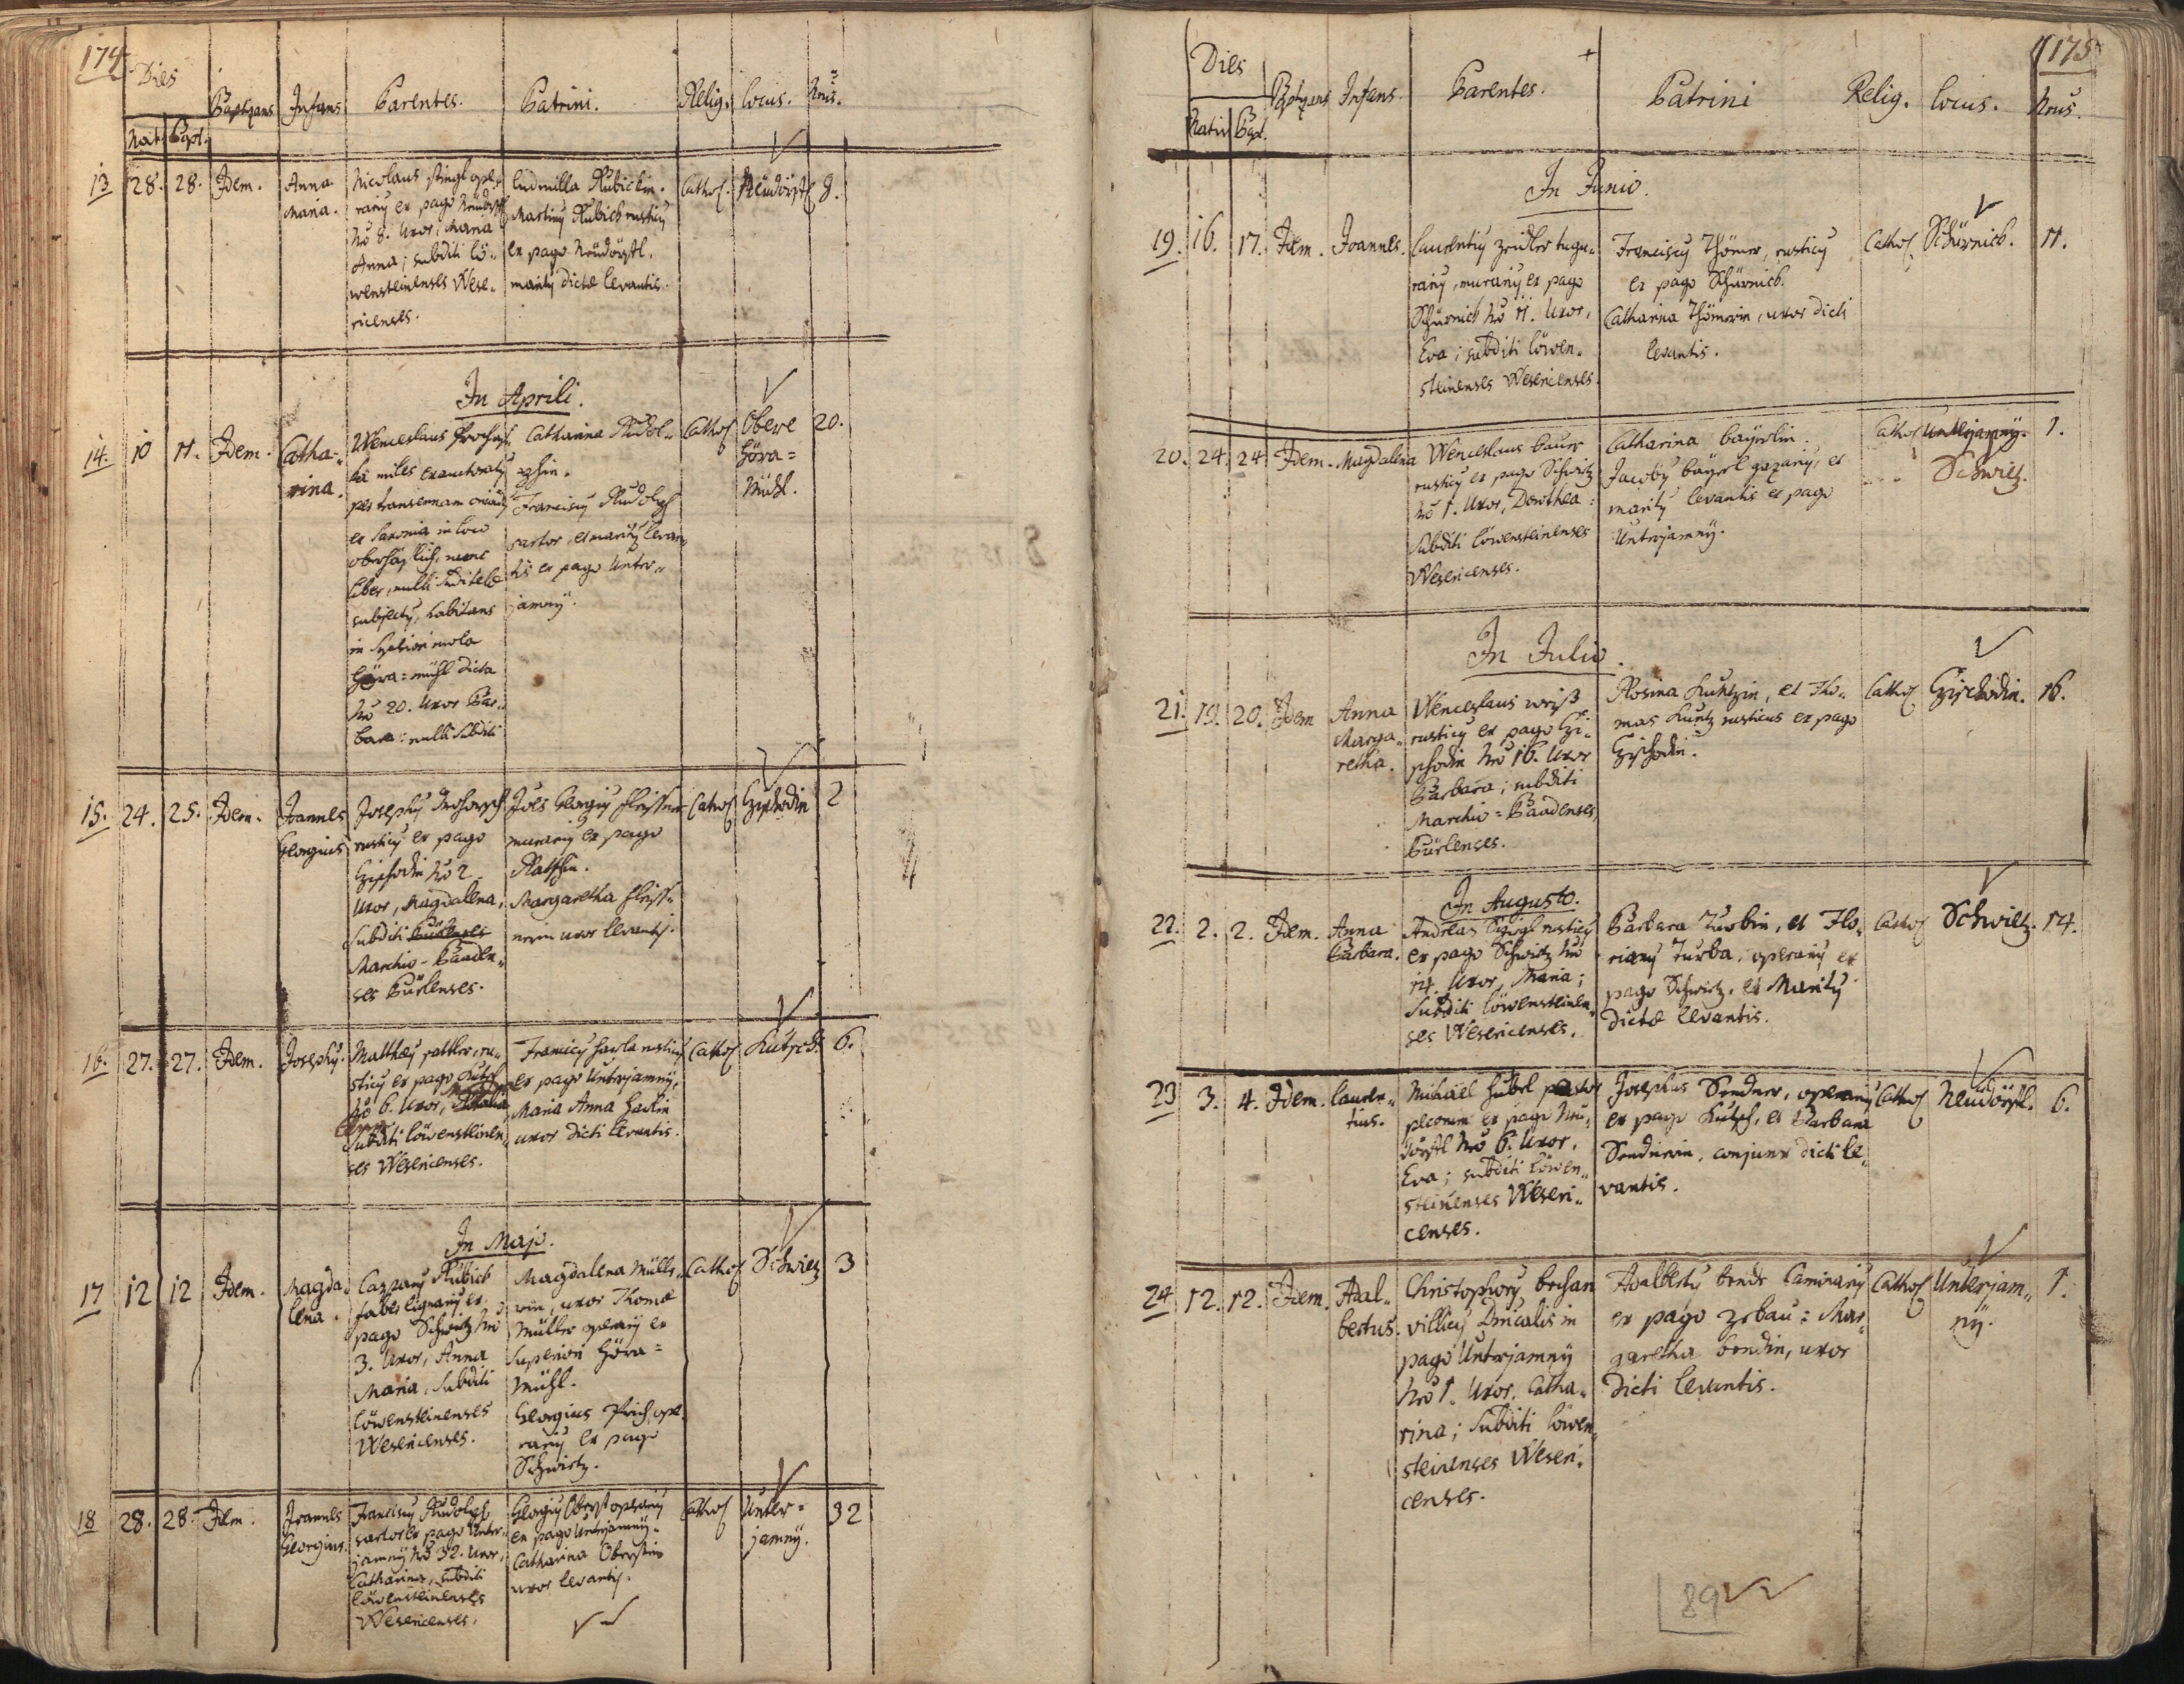 174
Dies
Baptizans Infans Parentes. Patrini. Relig. locus. Nrus.
Nat. Bapt.
13 28. 28. Idem. Anna Maria.
Nicolaus
rarij ex pago Neudörfl
Nro 8. Uxor, Maria
Anna; subditi lö-
wensteinenses Wese-
ricenses.
Ludmilla Kubickin.
Martinus Kubick rusticus
ex pago Neudörfl.
maritus dictae levantis.
Cathol. Neudörfl 8.
In Aprili.
14. 10 11. Idem. Catha-
rina.
Wenceslaus
ka miles
ex Saxonia in loco
nunc
liber, nulli
subjectus, habitans
in superiori mola
Göra=mühl dicta
Nro 20. Uxor Bar-
bara: nulli subditi
Catharina Rudol-
Franciscus Rudolph
sartor, et maritus levan-
tis ex pago Unter-
jamny.
Cathol Obere
Göra=
Mühl.
20.
15. 24. 25. Idem. Joannes
Georgius
Josephus
rusticus ex pago
Gzischodin Nro 2.
Uxor, Magdalena,
Subditi
Marchio-Baaden-
ses Gürlenses.
Joes Georgius Fleissner
murarius ex pago
Margaretha Fleiss-
nerin uxor levantis.
Cathol Gzischodin 2
16. 27. 27. Idem. Josephus.
Matthaeus Sattler, ru-
sticus ex pago Kutsch
Nro 6. Uxor,
Subditi löwensteinen-
ses Wesericenses.
Franciscus Hawla rusticus
ex pago Unterjamny,
Maria Anna Hawlin
uxor dicti levantis.
Cathol Kutsch. 6.
In Majo.
17 12 12 Idem. Magda-
lena.
Casparus Kubick
faber lignarius ex
pago Schwitz Nro
3. Uxor, Anna
Maria, Subditi
löwensteinenses
Wesericenses.
Magdalena Mülle-
rin, uxor Thomae
Müller operarij ex
Superiori Göra=
Mühl.
Georgius ope-
rarius ex pago
Schwitz.
Cathol Schwitz 3
18 28. 28. Idem. Joannes
Georgius.
Franciscus Rudolph
sartor ex pago Unter-
jamny Nro 32. Uxor,
Catharina, subditi
löwensteinenses
Wesericenses.
Georgius Oberst operarius
ex pago Unterjamny.
Catharina Oberstin
uxor levantis.
Cathol Unter=
jamny. 32
175
Dies
Baptizans Infans. Parentes. Patrini Relig. locus. Nrus.
Nativ Bapt.
In Junio.
19. 16. 17. Idem. Joannes.
Laurentius Zeidler tugu-
rarius, murarius ex pago
Schürnick Nro 11. Uxor,
Eva; subditi löwen-
steinenses Wesericenses.
Franciscus Thömer, rusticus
ex pago Schürnick.
Catharina Thömerin, uxor dicti
levantis.
Cathol. Schürnick. 11.
20. 24. 24 Idem. Magdalena
Wenceslaus Bauer
rusticus ex pago Schwitz
Nro 1. Uxor, Dorothea:
Subditi löwensteinenses
Wesericenses.
Catharina Bayerlin.
Jacobus Bayerl gazarius, et
maritus levantis ex pago
Unterjamny.
Cathol Unterjamny. 1.
Schwitz.
In Julio.
21. 19. 20. Idem Anna
Marga-
retha.
Wenceslaus Weiss
rusticus ex pago Gzi-
schodin Nro 16. Uxor
Barbara; subditi
Marchio=Baadenses,
Gürlenses.
Rosina Kuntzin, et Tho-
mas Kuntz rusticus ex pago
Gzischodin.
Cathol Gzischodin. 16.
In Augusto.
22. 2. 2. Idem. Anna
Barbara.
Andreas rusticus
ex pago Schwitz Nro
14. Uxor, Maria;
Subditi löwensteinen-
ses Wesericenses.
Barbara Turbin, et Flo-
rianus Turba, operarius ex
pago Schwitz, et Maritus
dictae levantis.
Cathol Schwitz. 14.
23 3. 4. Idem. Lauren-
tius.
Michael Hubel pastor
pecorum ex pago Neu-
dörfl Nro 6. Uxor,
Eva; subditi Löwen-
steinenses Weseri-
censes.
Josephus Sendner, operarius
ex pago Kutsch, et Barbara
Sendnerin, conjunx dicti le-
vantis.
Cathol Neudörfl. 6.
24 12. 12. Idem. Adal-
bertus.
Christophorus
villicus Dnicalis in
pago Unterjamny
Nro 1. Uxor, Catha-
rina; Subditi löwen-
steinenses Weseri-
censes.
Adalbertus Bendt Caminarius
ex pago Zebau: Mar-
garetha Bendin, uxor
dicti levantis.
Cathol Unterjam-
ny. 1.
89